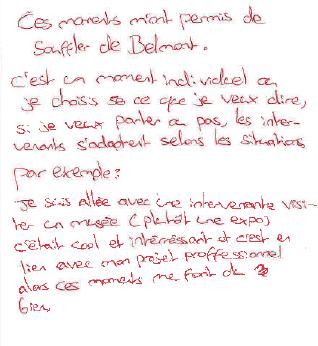 Ces moments m'ont permis de
souffler de Belmont.
c'est un moment individuel ou
je choisis se ce que je veux dire,
si je veux parler ou pas, les inter-
venants s'adaptent selons les situations
par exemple:
Je suis allée avec une intervenante visi-
ter un musée (plutôt une expo)
c'était cool et intéréssant et c'est en
lien avec mon projet proffessionnel
alors ces moments me font du
bien